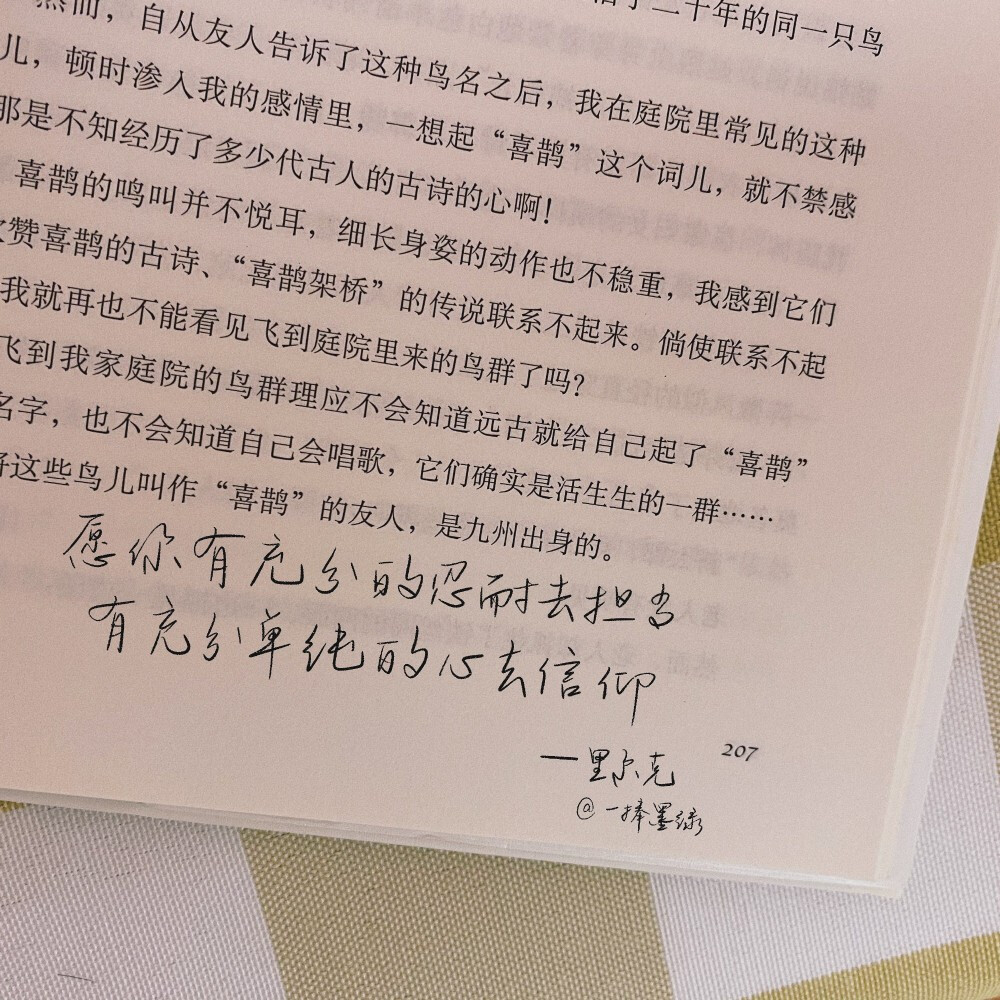 二十年的同一只鸟
然而，自从友人告诉了这种鸟名之后，我在庭院里常见的这种
儿，顿时渗入我的感情里，一想起“喜鹊”这个词儿，就不禁感
那是不知经历了多少代古人的古诗的心啊！
喜鹊的鸣叫并不悦耳，细长身姿的动作也不稳重，我感到它们
赞喜鹊的古诗、“喜鹊架桥”的传说联系不起来。倘使联系不起
我就再也不能看见飞到庭院里来的鸟群了吗？
飞到我家庭院的鸟群理应不会知道远古就给自己起了“喜鹊”
名字，也不会知道自己会唱歌，它们确实是活生生的一群……
这些鸟儿叫作“喜鹊”的友人，是九州出身的。
愿你有充分的忍耐去担当
有充分单纯的心去信仰
207
—里尔克
@一捧墨绿